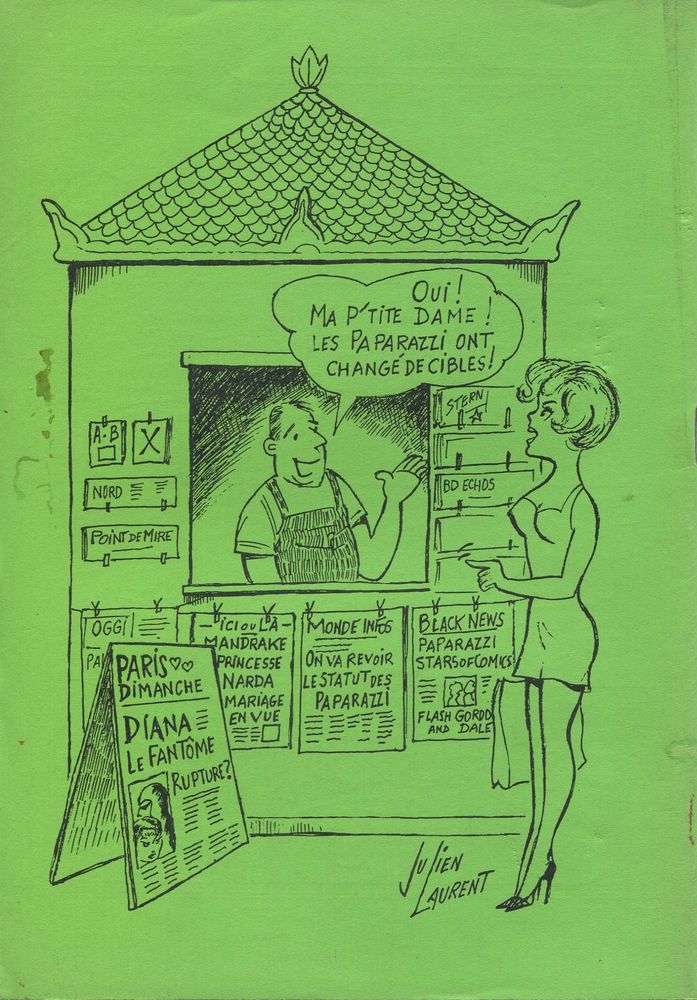 OUI!
MA P'TITE DAME!
LES PAPARAZZI ONT
CHANGÉ DE CIBLES!
STERN
A-B
X
NORD
BD ECHOS
POINT DE MIRE
OGGI
PA
-ICI OU LÀ-
MANDRAKE
PRINCESSE
NARDA
MARIAGE
EN VUE
MONDE INFOS
ON VA REVOIR
LE STATUT DES
PAPARAZZI
BLACK NEWS
PAPARAZZI
STARS OF COMICS
FLASH GORDO
AND DALE
PARIS
DIMANCHE
DIANA
LE FANTÔME
RUPTURE?
JULIEN
LAURENT